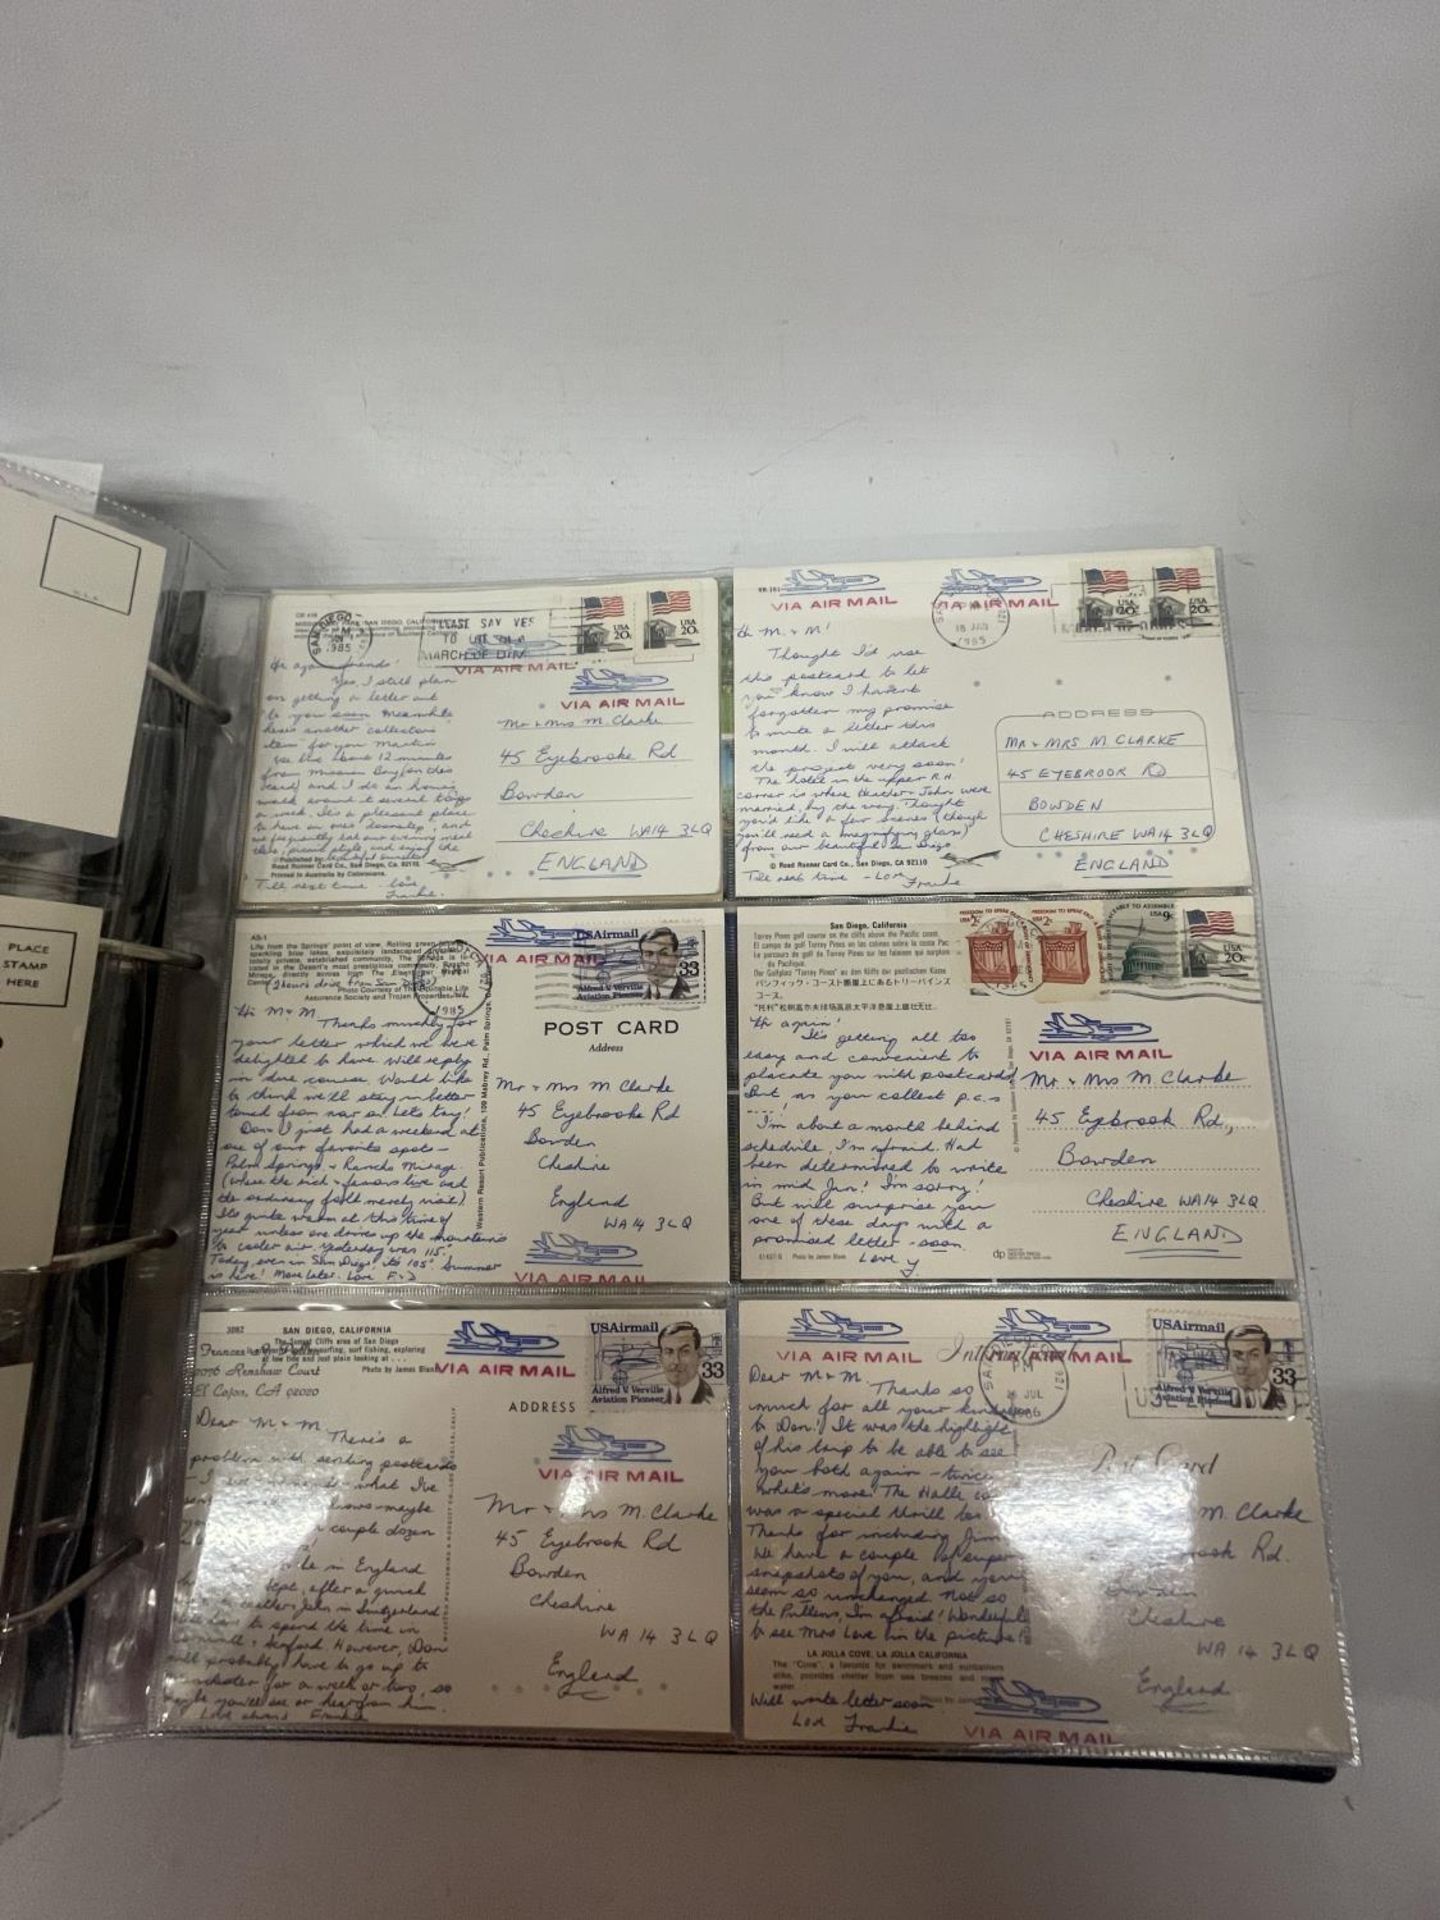 U.S.A.
PLACE
STAMP
HERE
SAN DIEGO
1985
PLEASE SAY YES
TO
MARCH OF DIMES
USA
20c
USA
20c
VIA AIR MAIL
VIA AIR MAIL
Yes, I still plan
on getting a letter out
to you soon. Meanwhile
here's another collectors
item for you Martin.
We live about 12 minutes
from Mission Bay (on this
card) and I do an hour's
walk around it several times
a week. It's a pleasant place
to have on one's doorstep, and
we frequently eat our evening meal
there, picnic style, and enjoy the
beautiful sunsets!
Published by:
Road Runner Card Co., San Diego, Ca. 92110
Printed in Australia by Colorscans.
Till next time - Love
Frankie.
Mr & Mrs M. Clarke
45 Eyebrooke Rd
Bowden
Cheshire WA14 3LQ
ENGLAND
VIA AIR MAIL
VIA AIR MAIL
18 JAN
1985
USA
20c
USA
20c
Hi M. & M!
Thought I'd use
this postcard to let
you know I haven't
forgotten my promise
to write a letter this
month. I will attack
the project very soon!
The hotel in the upper R.H.
corner is where Heather & John were
married, by the way. Thought
you'd like a few scenes (though
you'll need a magnifying glass)
from our beautiful San Diego.
© Road Runner Card Co., San Diego, CA 92110
Till next time - Love
Frankie
ADDRESS
MR & MRS M CLARKE
45 EYEBROOK RD
BOWDEN
CHESHIRE WA14 3LQ
ENGLAND
AS-1
Life from the Springs' point of view. Rolling green
sparkling blue lakes, exquisitely landscaped
totally private, established community. The Springs is
located in the Desert's most prestigious community, Rancho
Mirage, directly across from The Eisenhower Medical
Center.
(2 hours drive from San Diego)
Photo Courtesy of The Equitable Life
Assurance Society and Trojan Properties,
1985
VIA AIR MAIL
USAirmail
33
Alfred V. Verville
Aviation Pioneer
Hi M & M
Thanks muchly for
your letter which we were
delighted to have. Will reply
in due course. Would like
to think we'll stay in better
touch from now on. Lets try!
Don & I just had a weekend at
one of our favorite spots -
Palm Springs & Rancho Mirage.
(where the rich & famous live and
the ordinary folk merely visit)
It's quite warm at this time of
year unless one drives up the mountains
to cooler air. Yesterday was 115°!
Today, even in San Diego, its 105°. Summer
is here! More later. Love F & D
Western Resort Publications, 109 Mabrey Rd., Palm Springs,
POST CARD
Address
Mr & Mrs M Clarke
45 Eyebrooke Rd
Bowden
Cheshire
England
WA14 3LQ
VIA AIR MAIL
San Diego, California
Torrey Pines golf course on the cliffs above the Pacific coast.
El campo de golf Torrey Pines en las colinas sobre la costa Pac
Le parcours de golf de Torrey Pines sur les falaises qui surplom
du Pacifique.
Der Golfplatz "Torrey Pines" an den Kliffs der pazifischen Küste
パシフィック・コースト断崖上にあるトリーパインズ
コース。
USA 2c
USA 2c
USA 9c
USA
20c
1985
Hi again!
It's getting all too
easy and convenient to
placate you with postcards
But, as you collect p.c.s
----!
I'm about a month behind
schedule, I'm afraid. Had
been determined to write
in mid Jan! I'm sorry!
But will surprise you
one of these days with a
promised letter - soon.
Love
VIA AIR MAIL
Mr & Mrs M Clarke
45 Eyebrook Rd.,
Bowden
Cheshire WA14 3LQ
ENGLAND
dp
Photo by James Blank
3082
SAN DIEGO, CALIFORNIA
The Sunset Cliffs area of San Diego
surfing, surf fishing, exploring
at low tide and just plain looking at . . .
Photo by James Blank
Frances
Renshaw Court
El Cajon, CA 92020
VIA AIR MAIL
USAirmail
33
Alfred V. Verville
Aviation Pioneer
Dear M & M,
There's a
problem with sending postcards
what I've
maybe
couple dozen
in England
after a quick
in Switzerland
to spend the time in
Cornwall & Seaford. However, Don
will probably have to go up to
Manchester for a week or two, so
maybe you'll see or hear from him.
Love always Frankie
ADDRESS
VIA AIR MAIL
Mr & Mrs M. Clarke
45 Eyebrook Rd
Bowden
Cheshire
WA 14 3LQ
England
VIA AIR MAIL
International
AIR MAIL
JUL
USAirmail
33
Alfred V. Verville
Aviation Pioneer
Dear M & M.
Thanks so
much for all your kindness
to Don! It was the highlight
of his trip to be able to see
you both again - twice
what's more! The Halle
was a special thrill too
Thanks for including Jim
We have a couple of super
snapshots of you, and you
seem so unchanged. Not so
the Puttens, I'm afraid! Wonderful
to see Mrs Love in the pictures!
LA JOLLA COVE, LA JOLLA CALIFORNIA
The "Cove", a favorite for swimmers and sunbathers
alike, provides shelter from sea breezes and
water
Will write letter soon
Love Frankie
Post Card
M. Clarke
Rd.
Bowden
Cheshire
WA 14 3LQ
England
VIA AIR MAIL